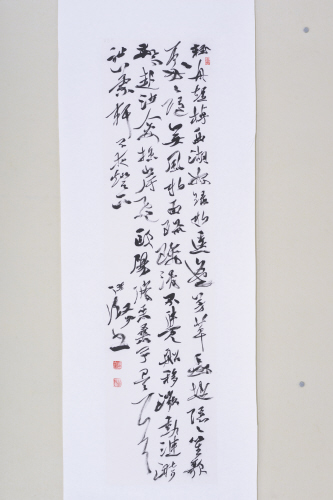 轻舟短棹西湖好绿水逶迤芳草长堤隐隐笙歌
处处随无风水面琉璃滑不觉船移微动涟漪
惊起沙禽掠岸飞欧阳修采桑子